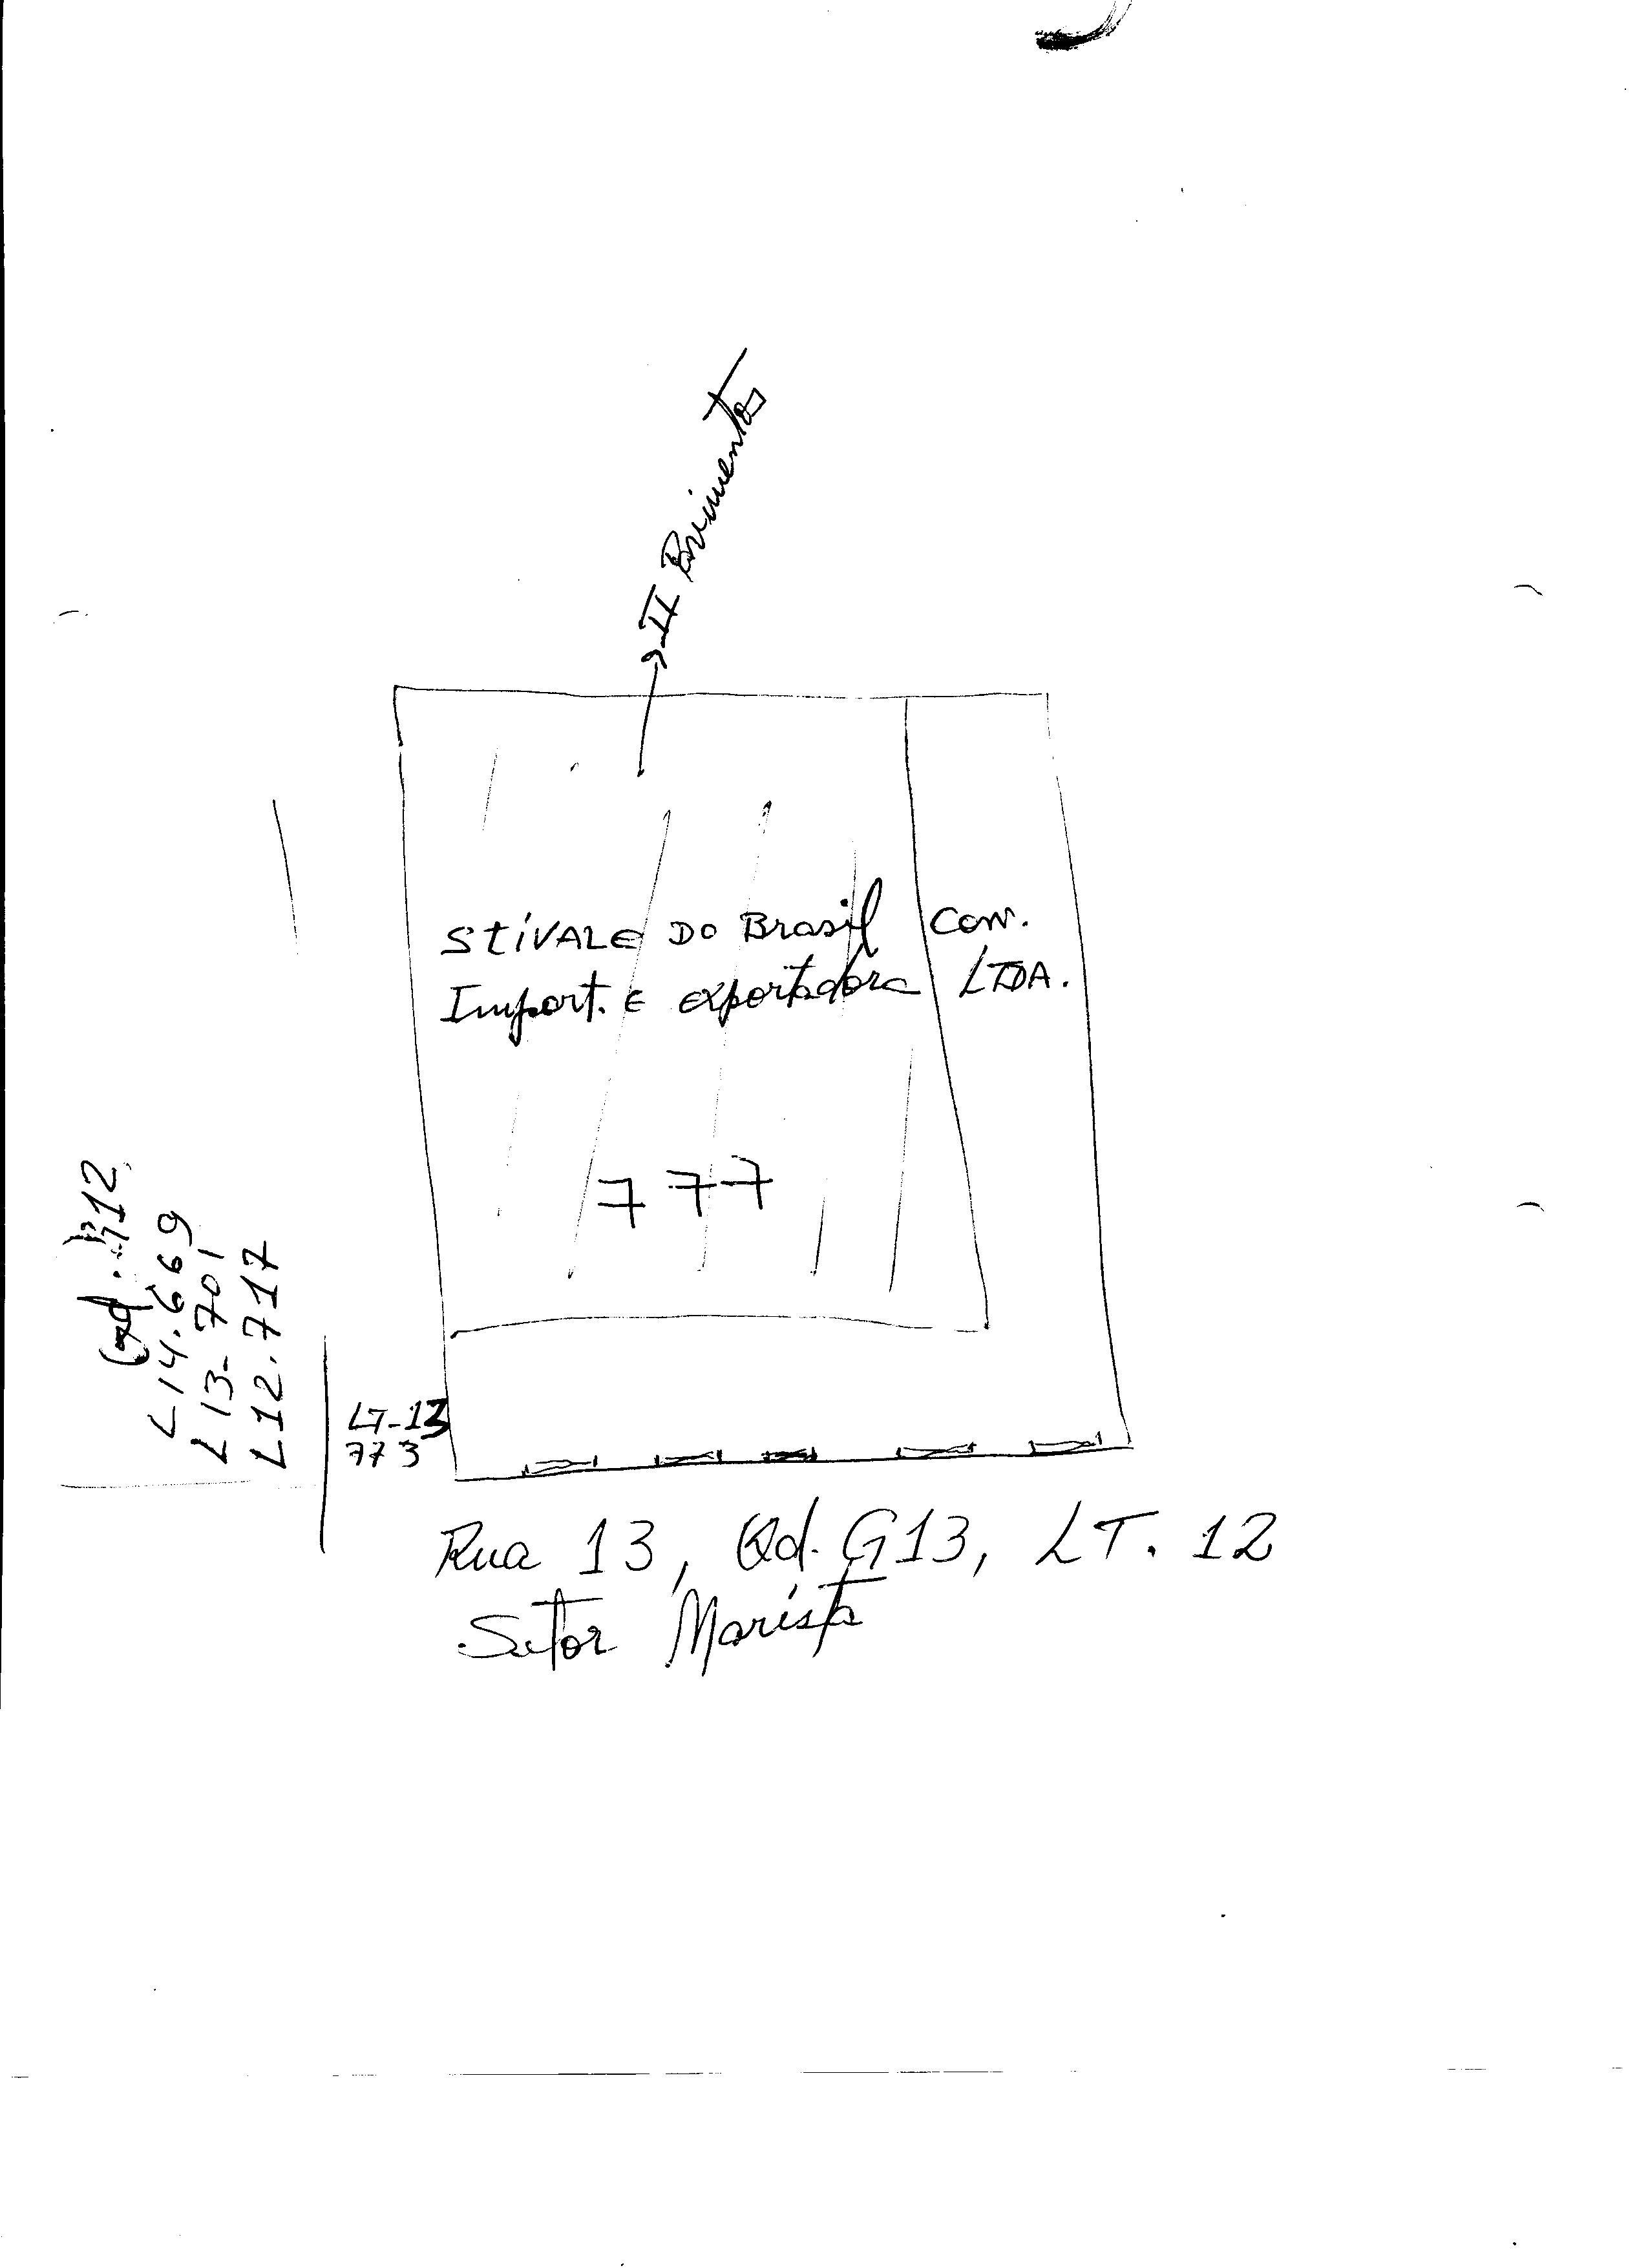 → II Pavimentos
STIVALE DO Brasil Com.
Import. E exportadora LTDA.
777
912
L 14.669
L 13-701
L 12.717
LT-13
773
Rua 13, Qd. G13, LT. 12
Setor Marista